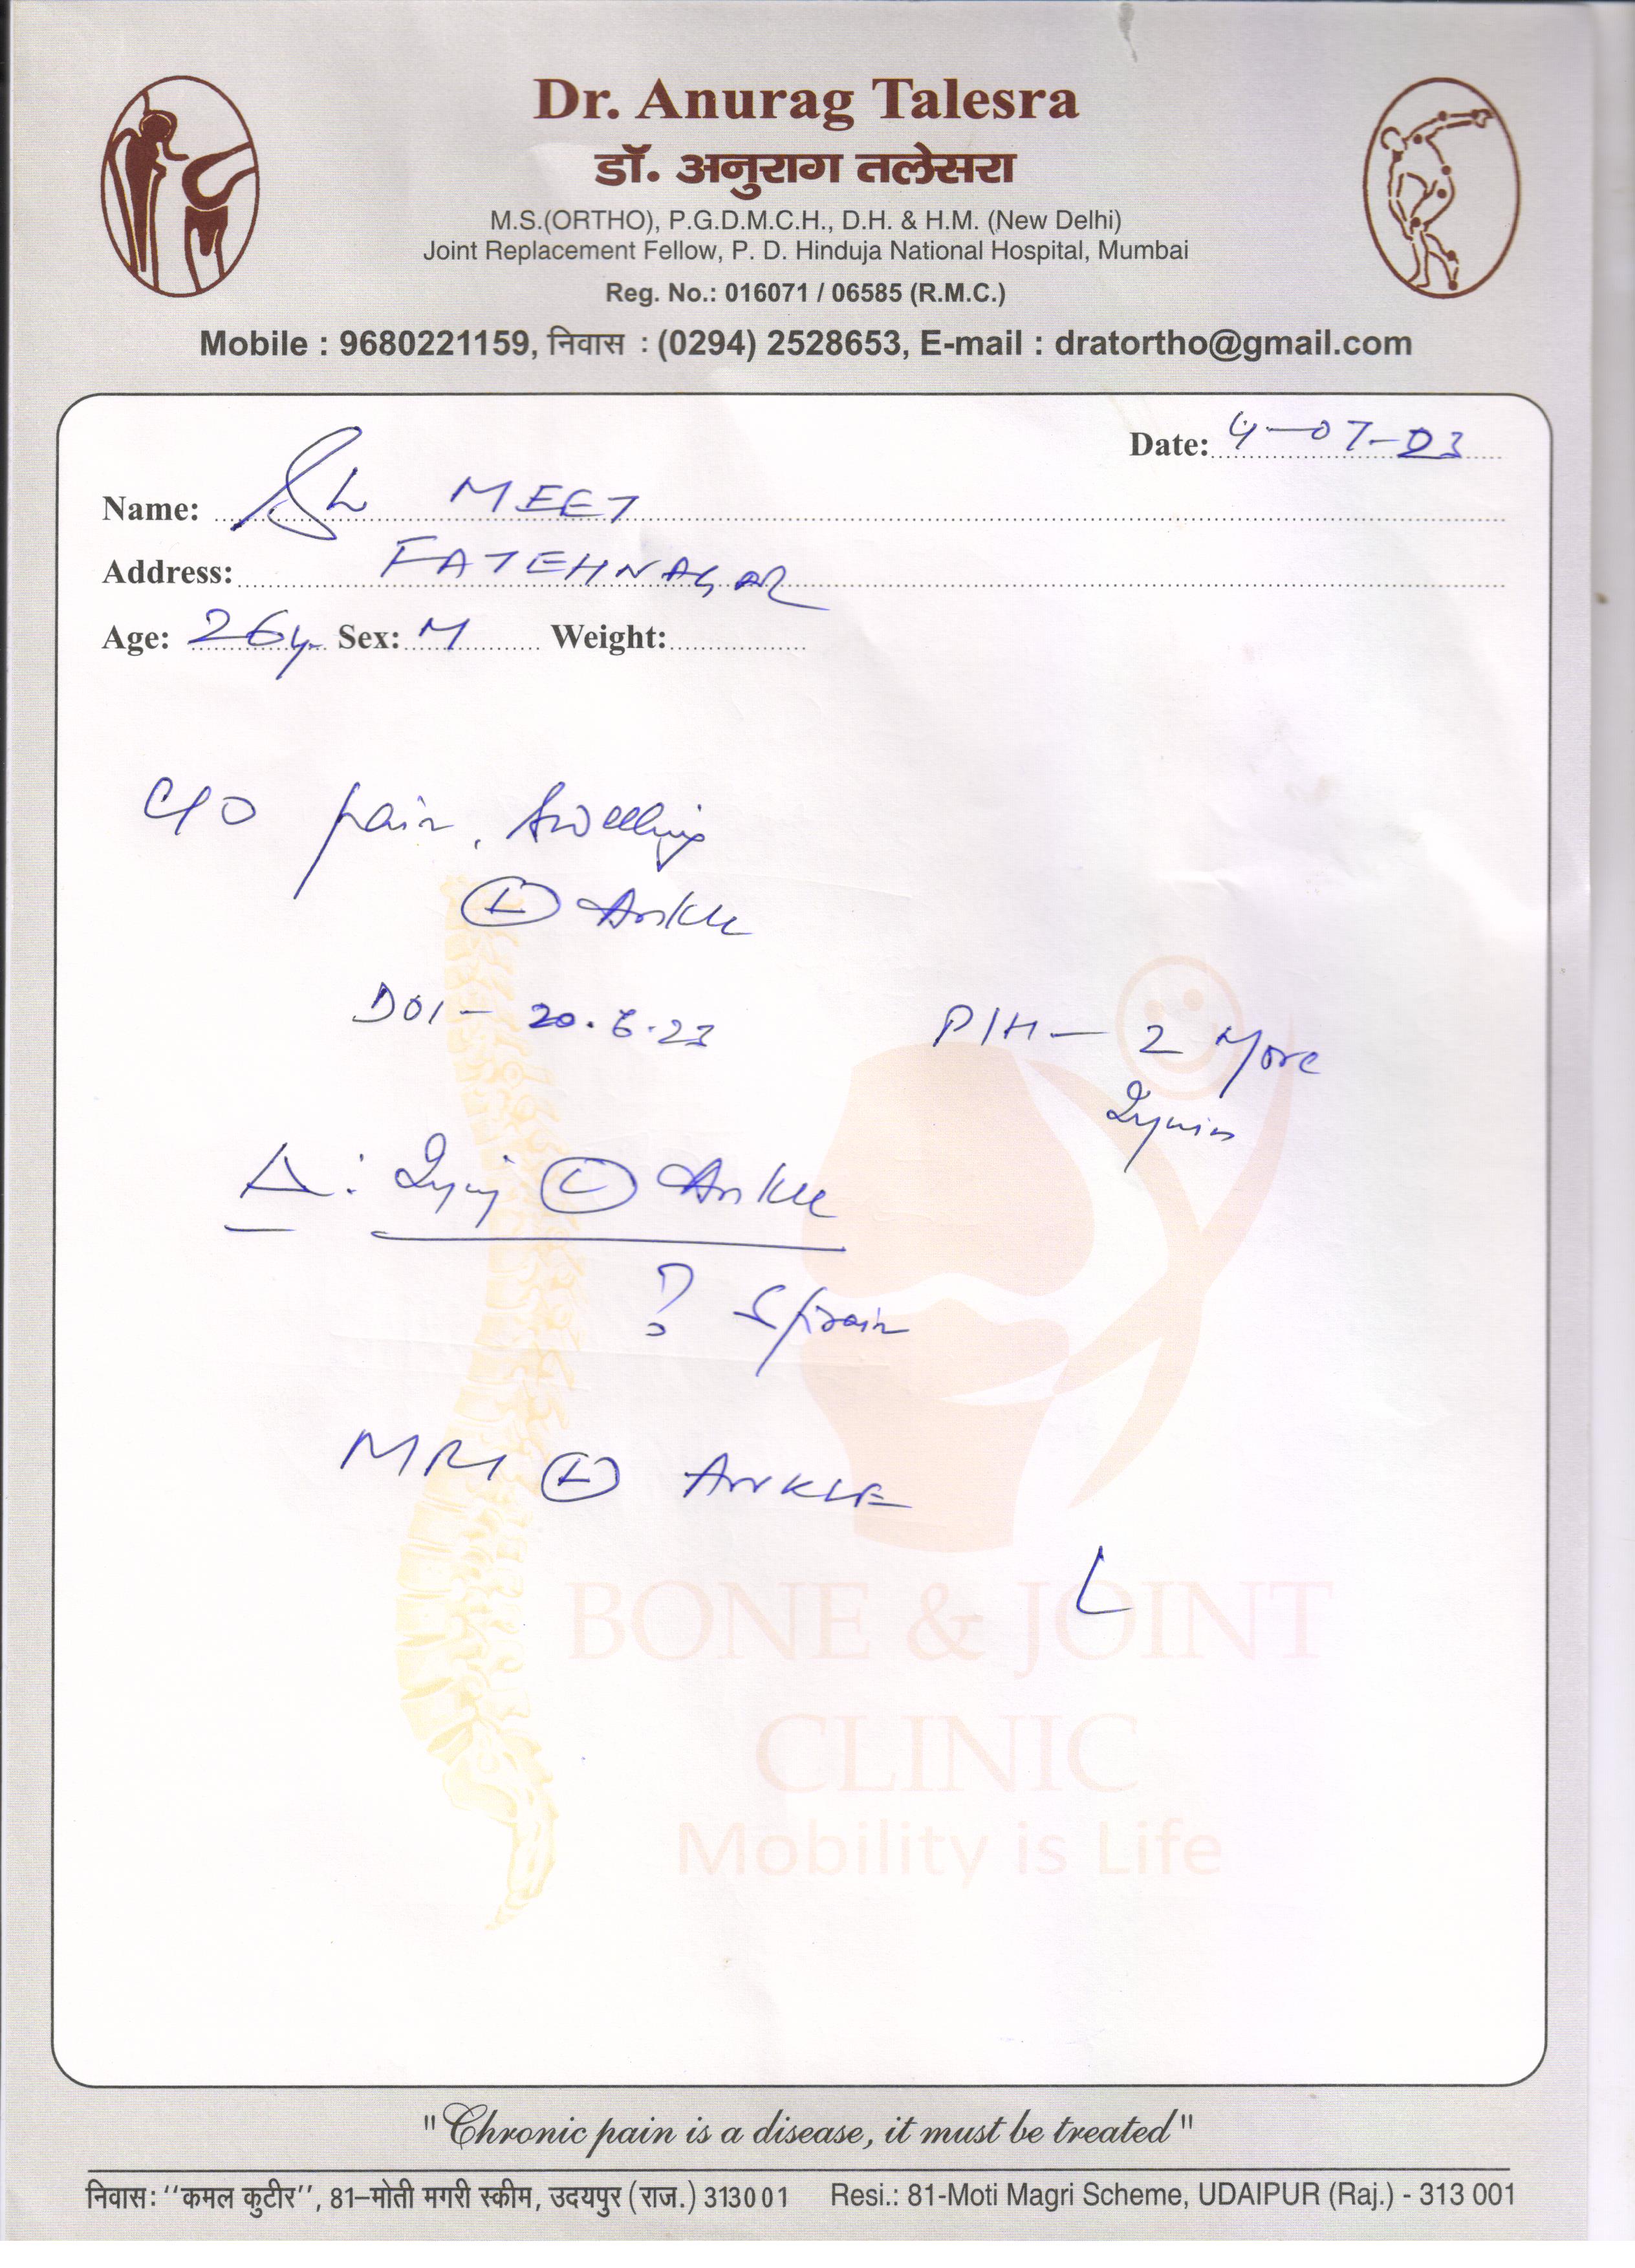 Dr. Anurag Talesra
डॉ. अनुराग तलेसरा
M.S.(ORTHO), P.G.D.M.C.H., D.H. & H.M. (New Delhi)
Joint Replacement Fellow, P. D. Hinduja National Hospital, Mumbai
Reg. No.: 016071 / 06585 (R.M.C.)
Mobile : 9680221159, निवास : (0294) 2528653, E-mail : dratortho@gmail.com
Date: 4-07-23
Name: Sh MEET
Address: FATEHNAGAR
Age: 26y. Sex: M Weight:
C/O pain, Swelling
(L) Ankle
DOI - 20.6.23
P/H - 2 More
Δ: Injury (L) Ankle
? Sprain
MRI (L) ANKLE
BONE & JOINT
CLINIC
Mobility is Life
"Chronic pain is a disease, it must be treated"
निवास: ‘‘कमल कुटीर’’, 81–मोती मगरी स्कीम, उदयपुर (राज.) 313001 Resi.: 81-Moti Magri Scheme, UDAIPUR (Raj.) - 313 001